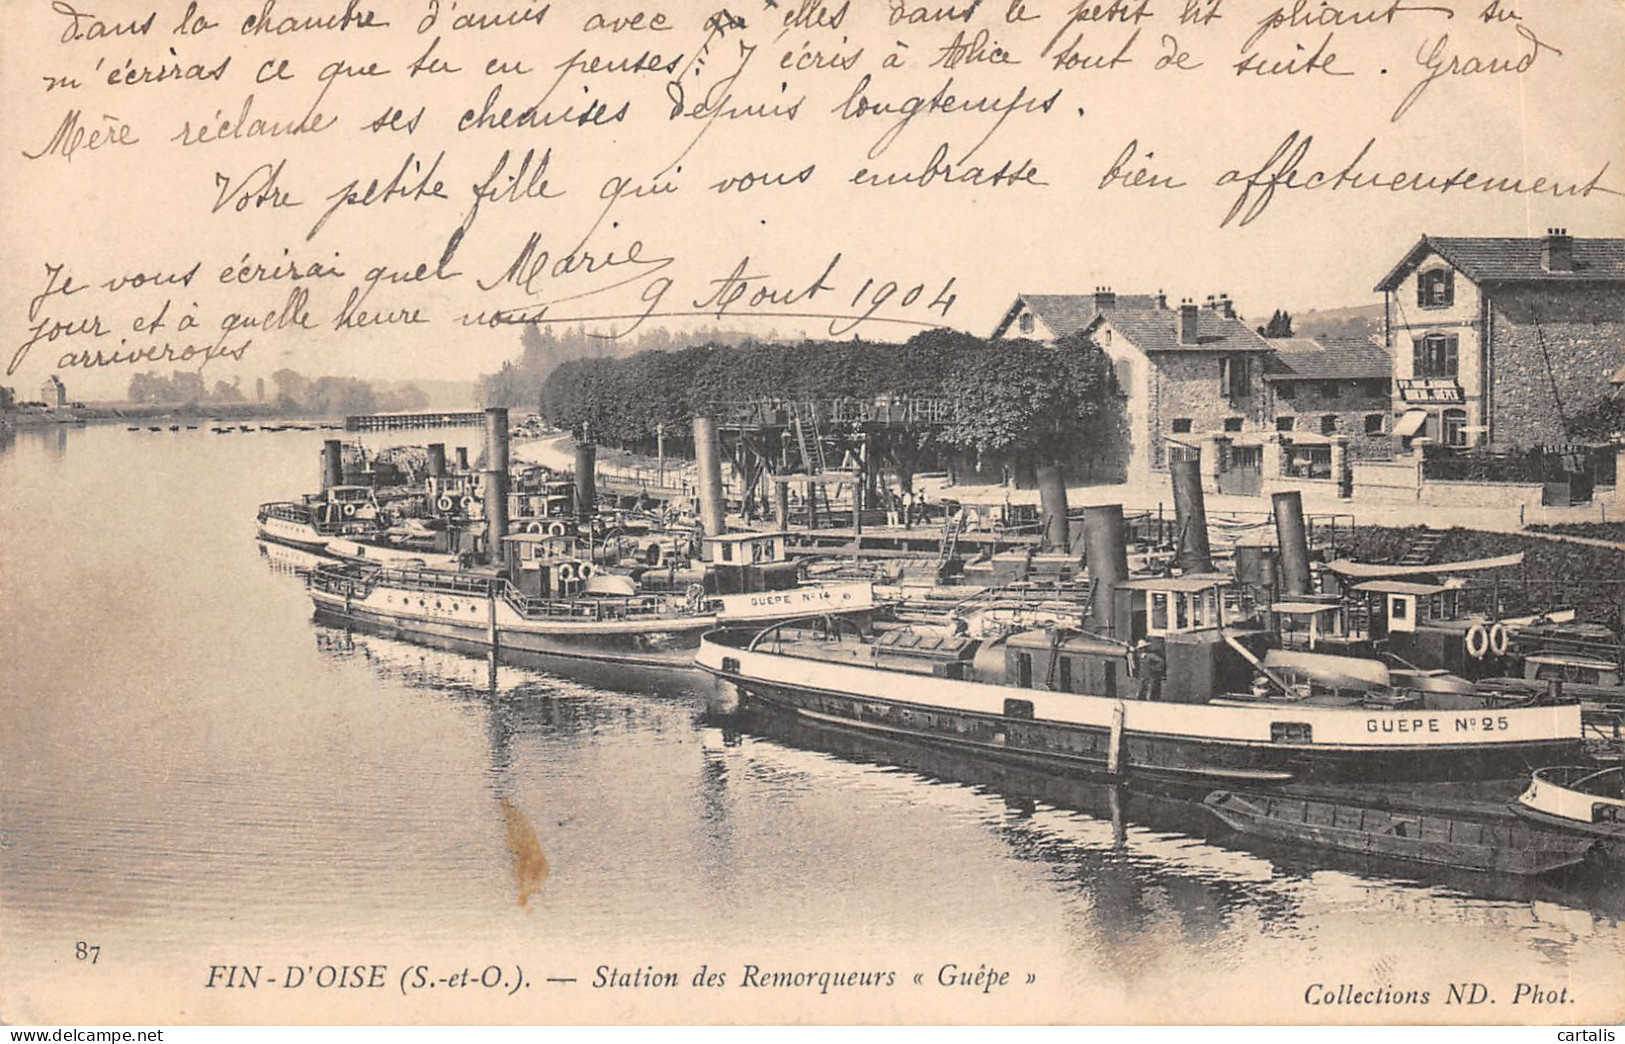 dans la chambre d'amis avec elles dans le petit lit pliant tu
m'écriras ce que tu en penses : J'écris à Alice tout de suite. Grand
Mère réclame ses chemises depuis longtemps.
Votre petite fille qui vous embrasse bien affectueusement
Marie
9 Aout 1904
Je vous écrirai quel
jour et à quelle heure nous
arriverons
GUÊPE Nº 14
GUÊPE Nº 25
87
FIN-D'OISE (S.-et-O.). — Station des Remorqueurs « Guêpe »
Collections ND. Phot.
cartalis